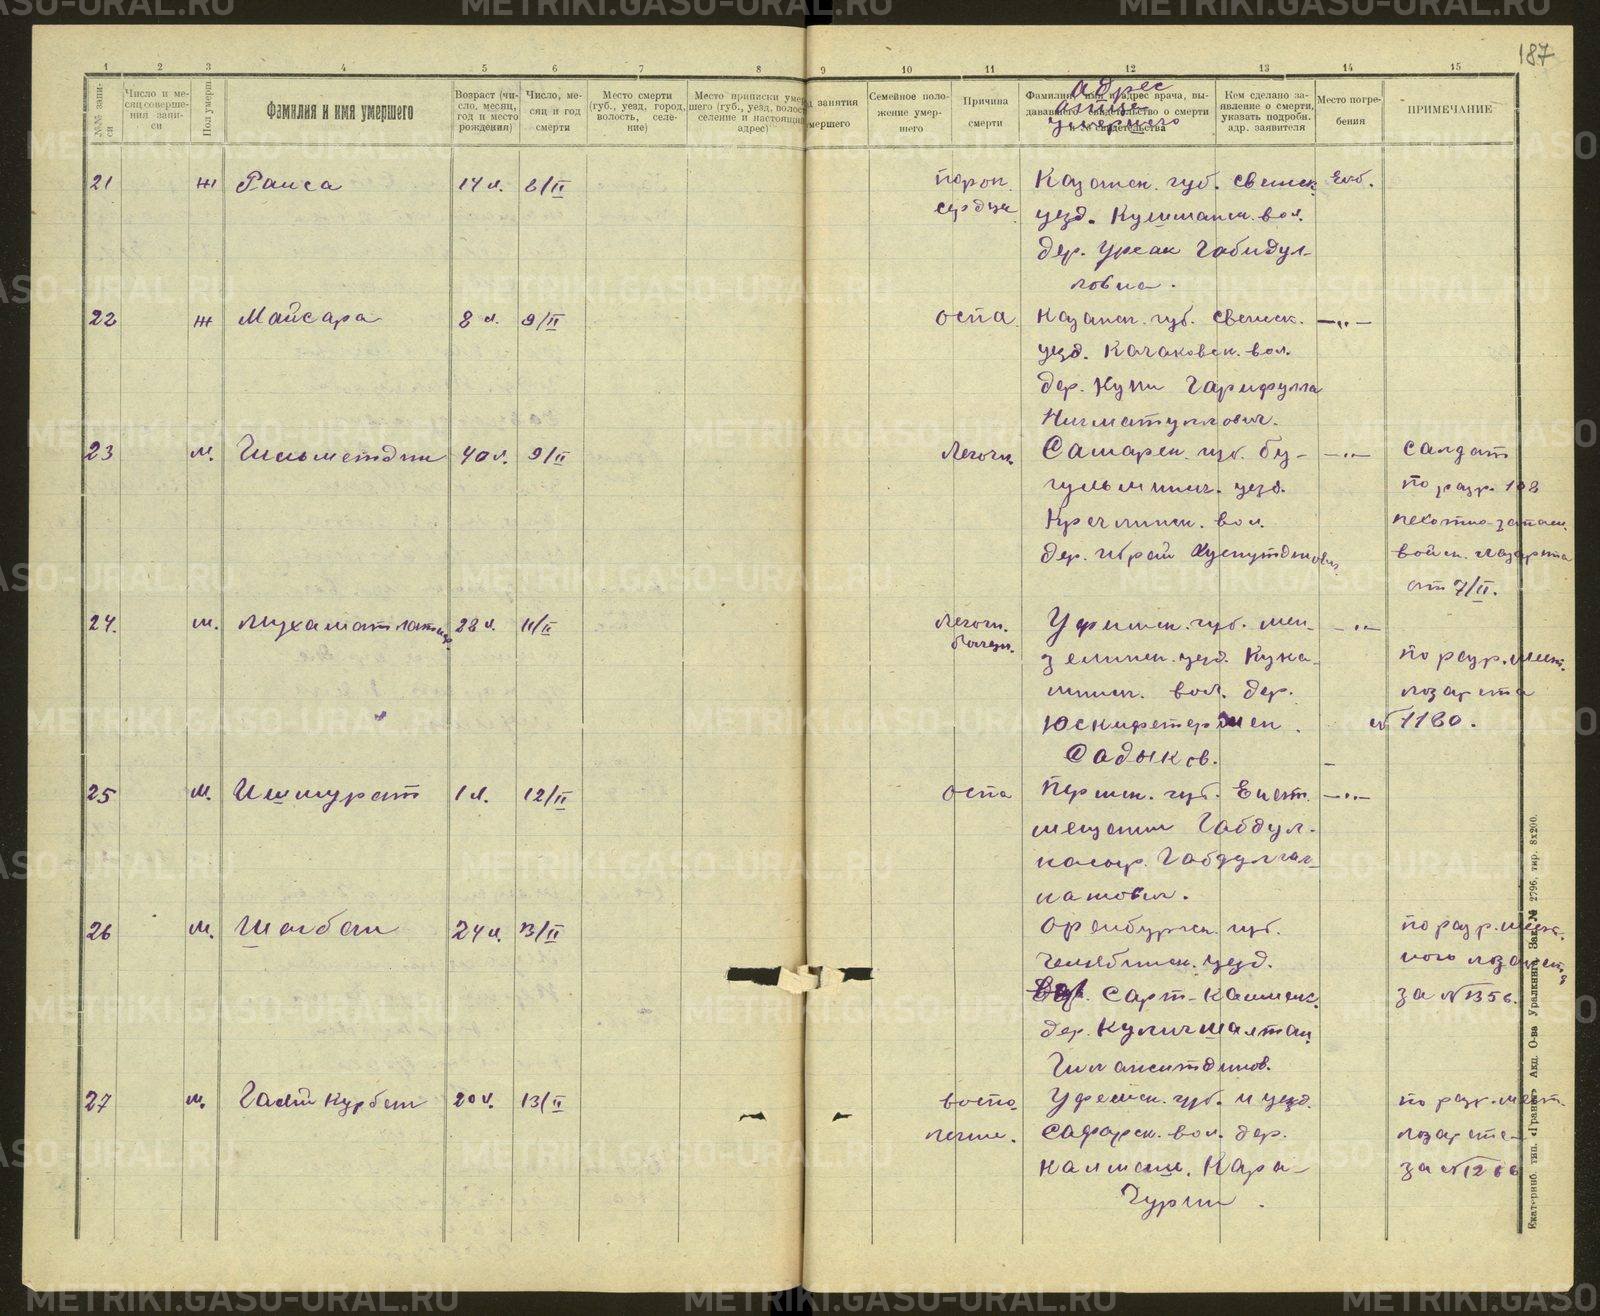 187
1 2 3 4 5 6 7 8 9 10 11 12 13 14 15
№№ запи-
си
Число и ме-
сяц соверше-
ния запи-
си
Пол умерш.
Фамилия и имя умершего
Возраст (чи-
сло, месяц,
год и место
рождения)
Число, ме-
сяц и год
смерти
Место смерти
(губ., уезд, город,
волость, селе-
ние)
Место приписки умер-
шего (губ., уезд, волость,
селение и настоящий
адрес)
занятия
умершего
Семейное поло-
жение умер-
шего
Причина
смерти
Фамилия, имя и адрес врача, вы-
дававшего свидетельство о смерти
и № свидетельства
адрес
отца
умершего
Кем сделано за-
явление о смерти,
указать подробн.
адр. заявителя
Место погре-
бения
ПРИМЕЧАНИЕ
21 ж Раиса 14 л. 8/II порок
сердца
Казанск. губ. Свияжск.
уезд. вол.
дер. Урсак Габидул-
ловна.
Екб.
22 ж Майсара 8 л. 9/II оспа
Казанск. губ. Свияжск. —„—
уезд. вол.
дер. Гарифулла
Нигматуллович.
23 м. 40 л. 9/II Легочн.
Самарск. губ. Бу- —„—
гульминск. уезд.
вол.
дер. Ибрай Хуснутдинович.
салдат
по разр. 108
пехотно-запасн.
войск. лазарета
от 7/II.
24. м. Мухаматлатиф 28 л. 11/II Легочн.
болезн.
Уфимск. губ. Мен- —„—
зелинск. уезд.
вол. дер.
Садыков.
по разр. мест.
лазарета
№ 1180.
25 м. Ишмурат 1 л. 12/II оспа
Пермск. губ. Екат. —„—
мещанин Габдул-
26 м. Шагбан 24 л. 13/II
Оренбургск. губ.
Челябинск. уезд.
Сарт-Калмык.
дер.
по разр. мест-
ного лазарета
за № 1356.
27 м. Гали Курбан 20 л. 13/II воспа.
легких.
Уфимск. губ. и уезд.
Сафарск. вол. дер.
Калмаш. Кара-
по разр. мест.
лазарета
за № 1266
Екатеринб. тип. «Гранит» Акц. О-ва Уралкнига. Зак. № 2796, тир. 8х200.
METRIKI.GASO-URAL.RU